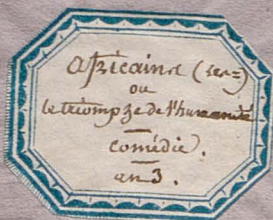 Africains (les=)
ou
le triomphe de l'humanité
comédie.
an 3.